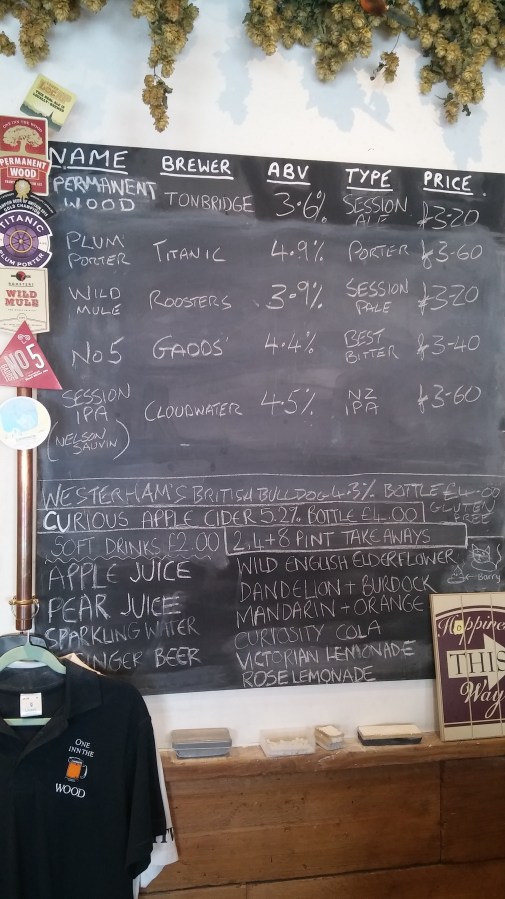 NAME BREWER ABV TYPE PRICE
PERMANENT WOOD TONBRIDGE 3.6% SESSION ALE £3-20
PLUM PORTER TITANIC 4.9% PORTER £3-60
WILD MULE ROOSTERS 3.9% SESSION PALE £3-20
No5 GADDS' 4.4% BEST BITTER £3-40
SESSION IPA (NELSON SAUVIN) CLOUDWATER 4.5% NZ IPA £3-60
WESTERHAM'S BRITISH BULLDOG 4.3% BOTTLE £4.00
GLUTEN FREE
CURIOUS APPLE CIDER 5.2% BOTTLE £4.00
SOFT DRINKS £2.00
2,4+8 PINT TAKEAWAYS
APPLE JUICE
PEAR JUICE
SPARKLING WATER
GINGER BEER
WILD ENGLISH ELDERFLOWER
DANDELION + BURDOCK
MANDARIN + ORANGE
CURIOSITY COLA
VICTORIAN LEMONADE
ROSE LEMONADE
Barry
PERMANENT
WOOD
TITANIC
PLUM PORTER
ROOSTERS
WILD
MULE
No 5
Happiness
THIS
Way
ONE
INN THE
WOOD